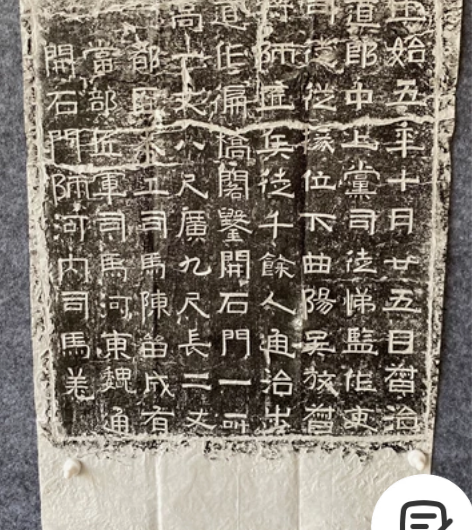 正始五年十月廿五日督治
道郎中上黨司徒悌監作吏
司徒從掾位下曲陽吴放督
將師匠兵徒千餘人通治步
道作偏橋閣鑿開石門一所
高一丈八尺廣九尺長二丈
都匠木工司馬陳留成有
當部匠軍司馬河東魏通
開石門師河内司馬羌